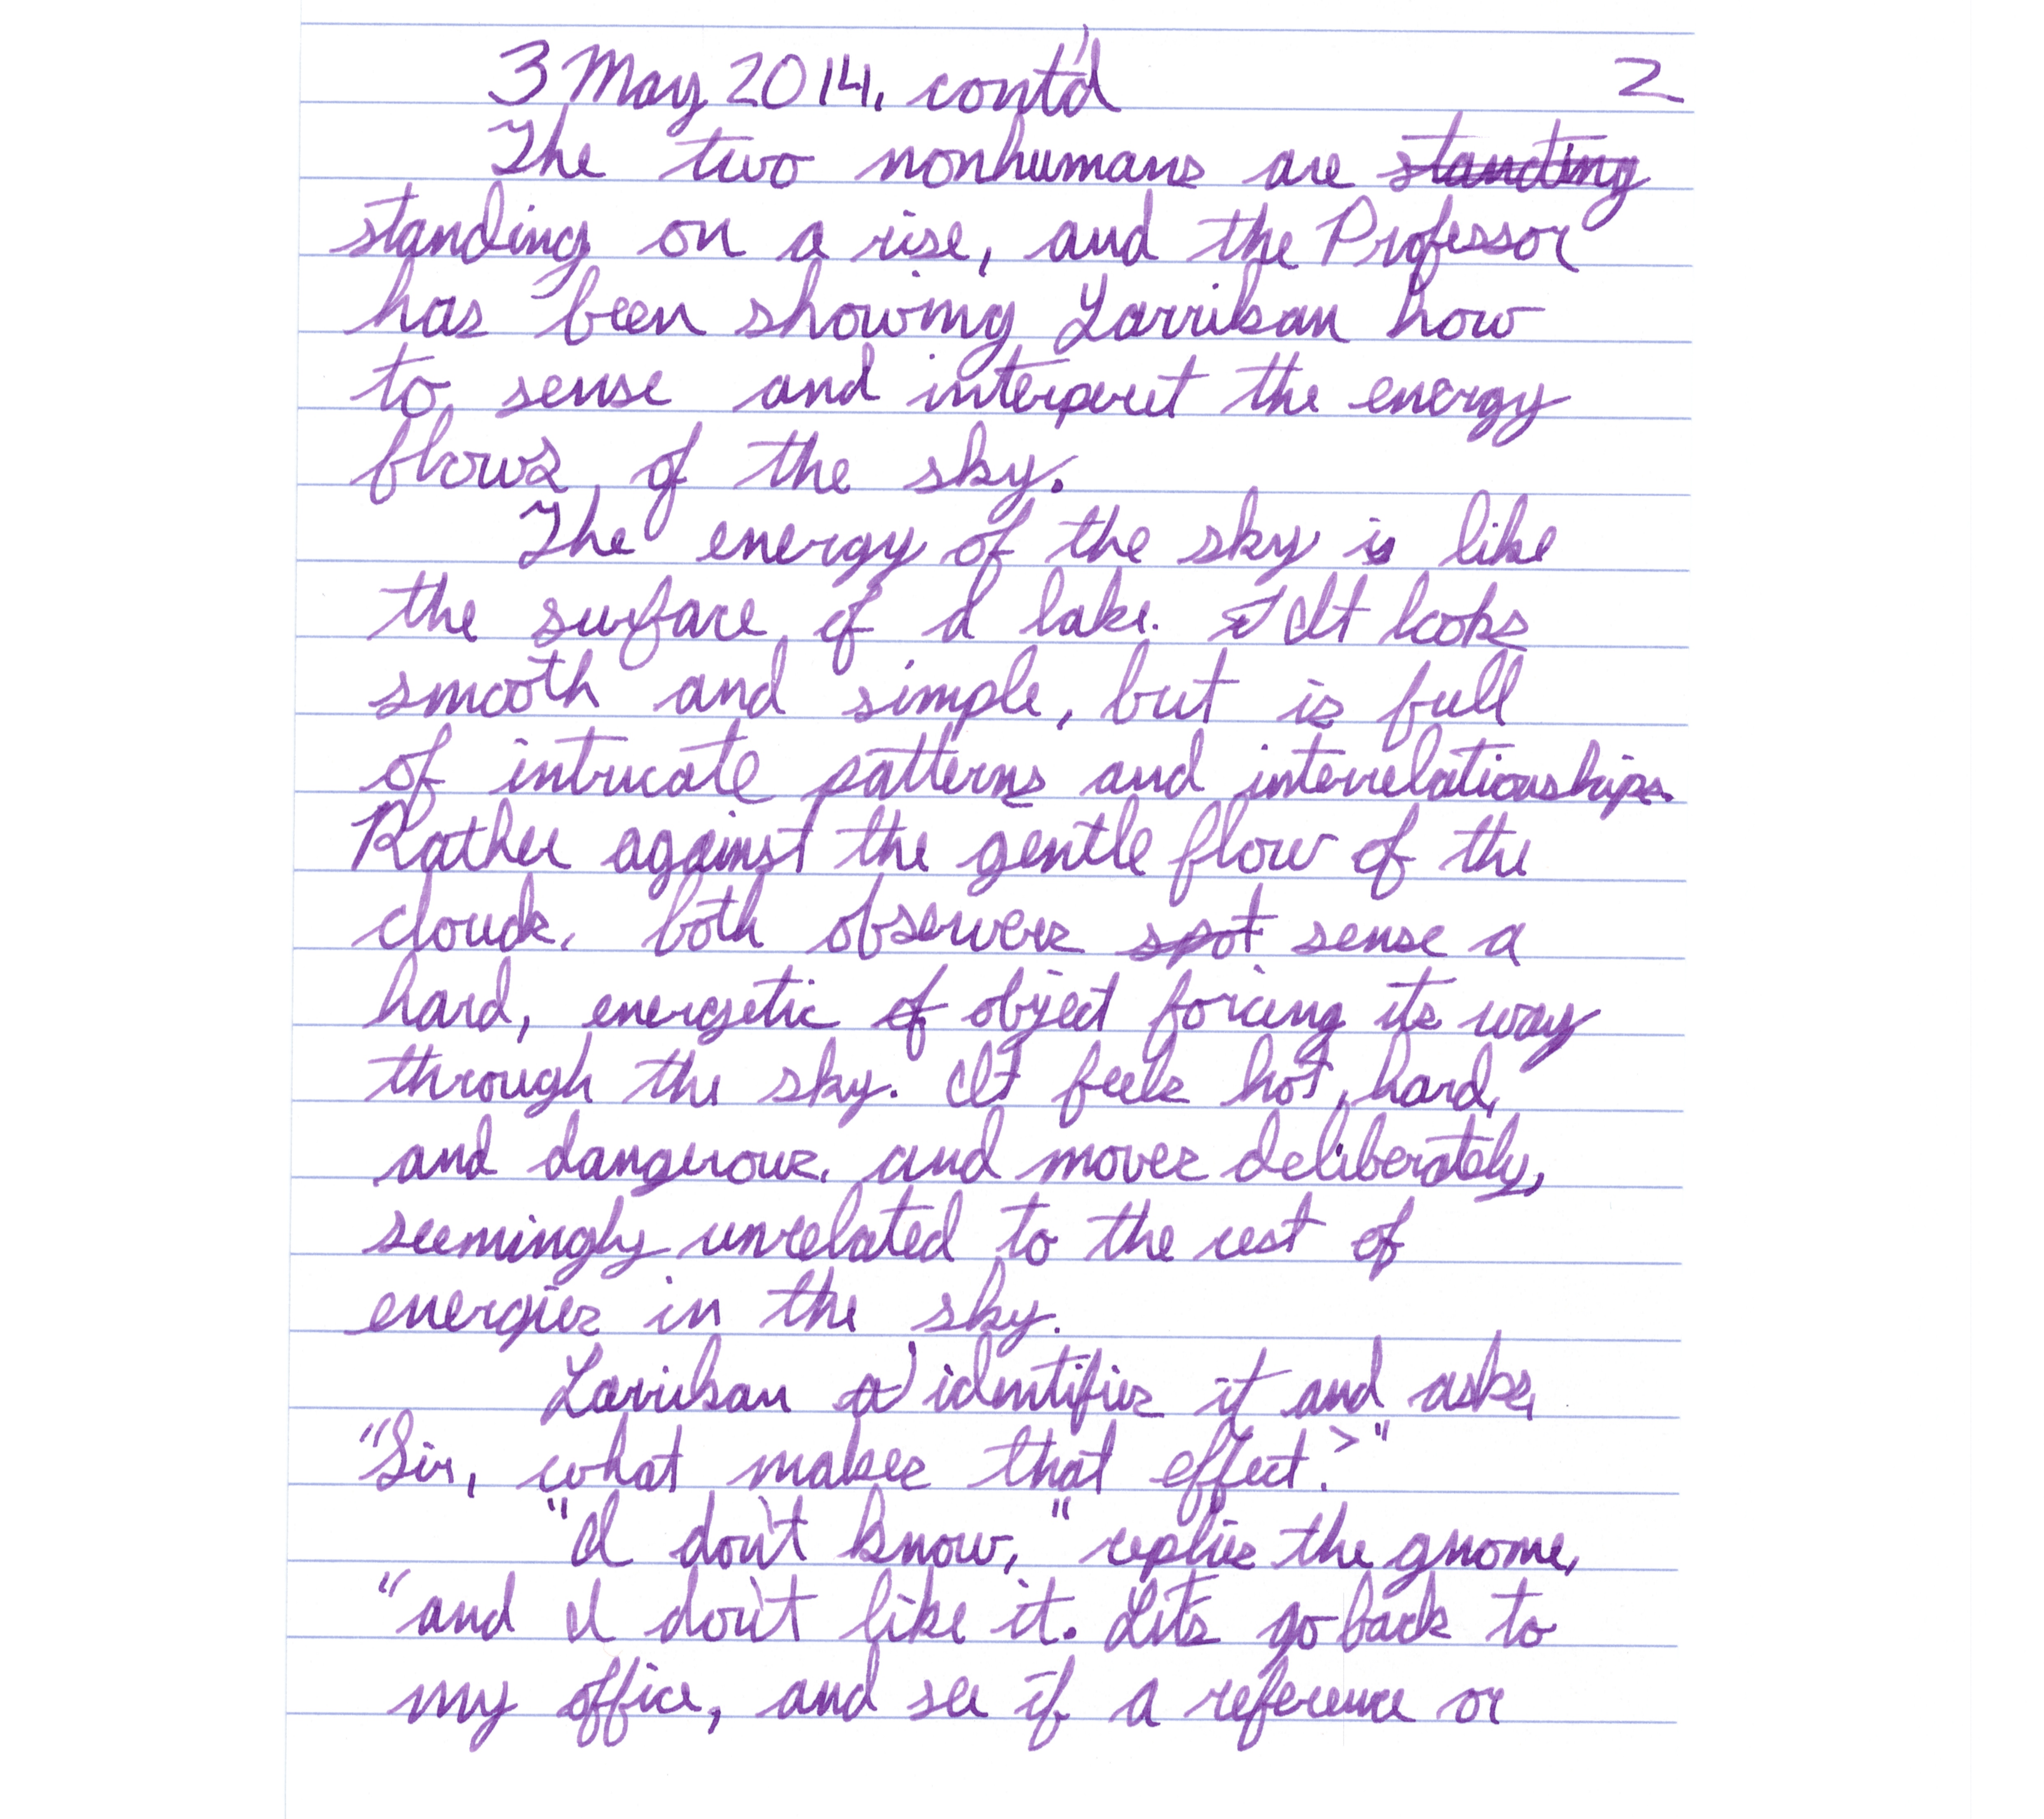 3 May 2014, cont'd 2
The two nonhumans are standing
standing on a rise, and the Professor
has been showing Larriban how
to sense and interpret the energy
flows of the sky.
The energy of the sky is like
the surface of a lake. I It looks
smooth and simple, but is full
of intricate patterns and interrelationships.
Rather against the gentle flow of the
clouds, both observers spot sense a
hard, energetic of object forcing its way
through the sky. It feels hot, hard,
and dangerous, and moves deliberately,
seemingly unrelated to the rest of
energies in the sky.
Larriban a identifies it and asks,
"Sir, what makes that effect?"
"I don't know," replies the gnome,
"and I don't like it. Let's go back to
my office, and see if a reference or